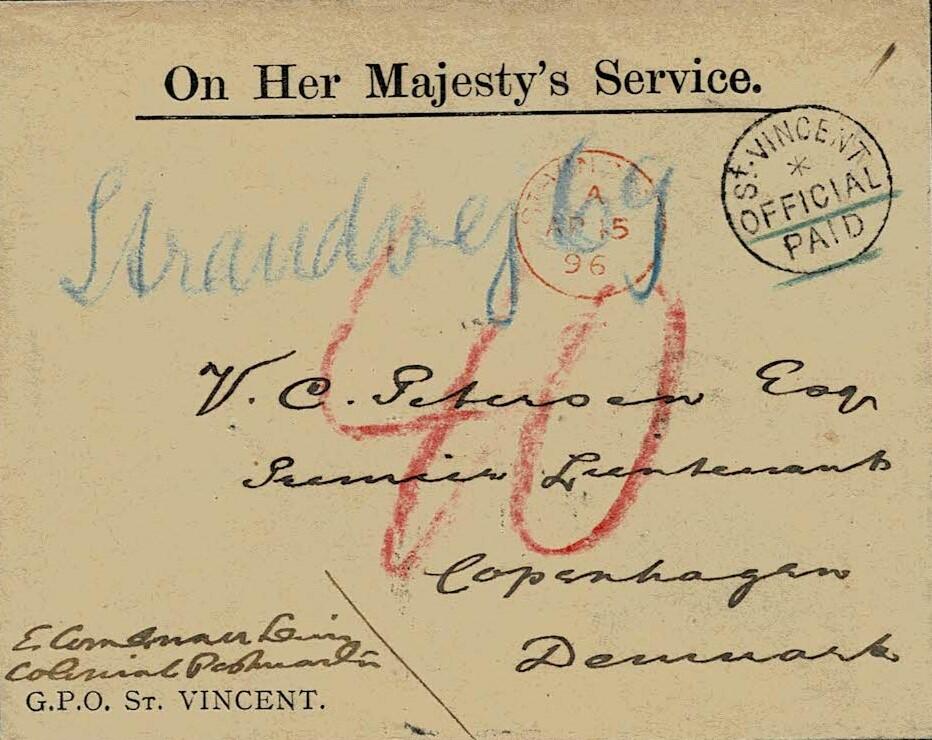 On Her Majesty's Service.
St. VINCENT
*
OFFICIAL
PAID
A
AP 15
96
40
V. C. Petersen Esqr
Premier Lieutenant
Copenhagen
Denmark
Colonial Postmaster
G.P.O. ST. VINCENT.